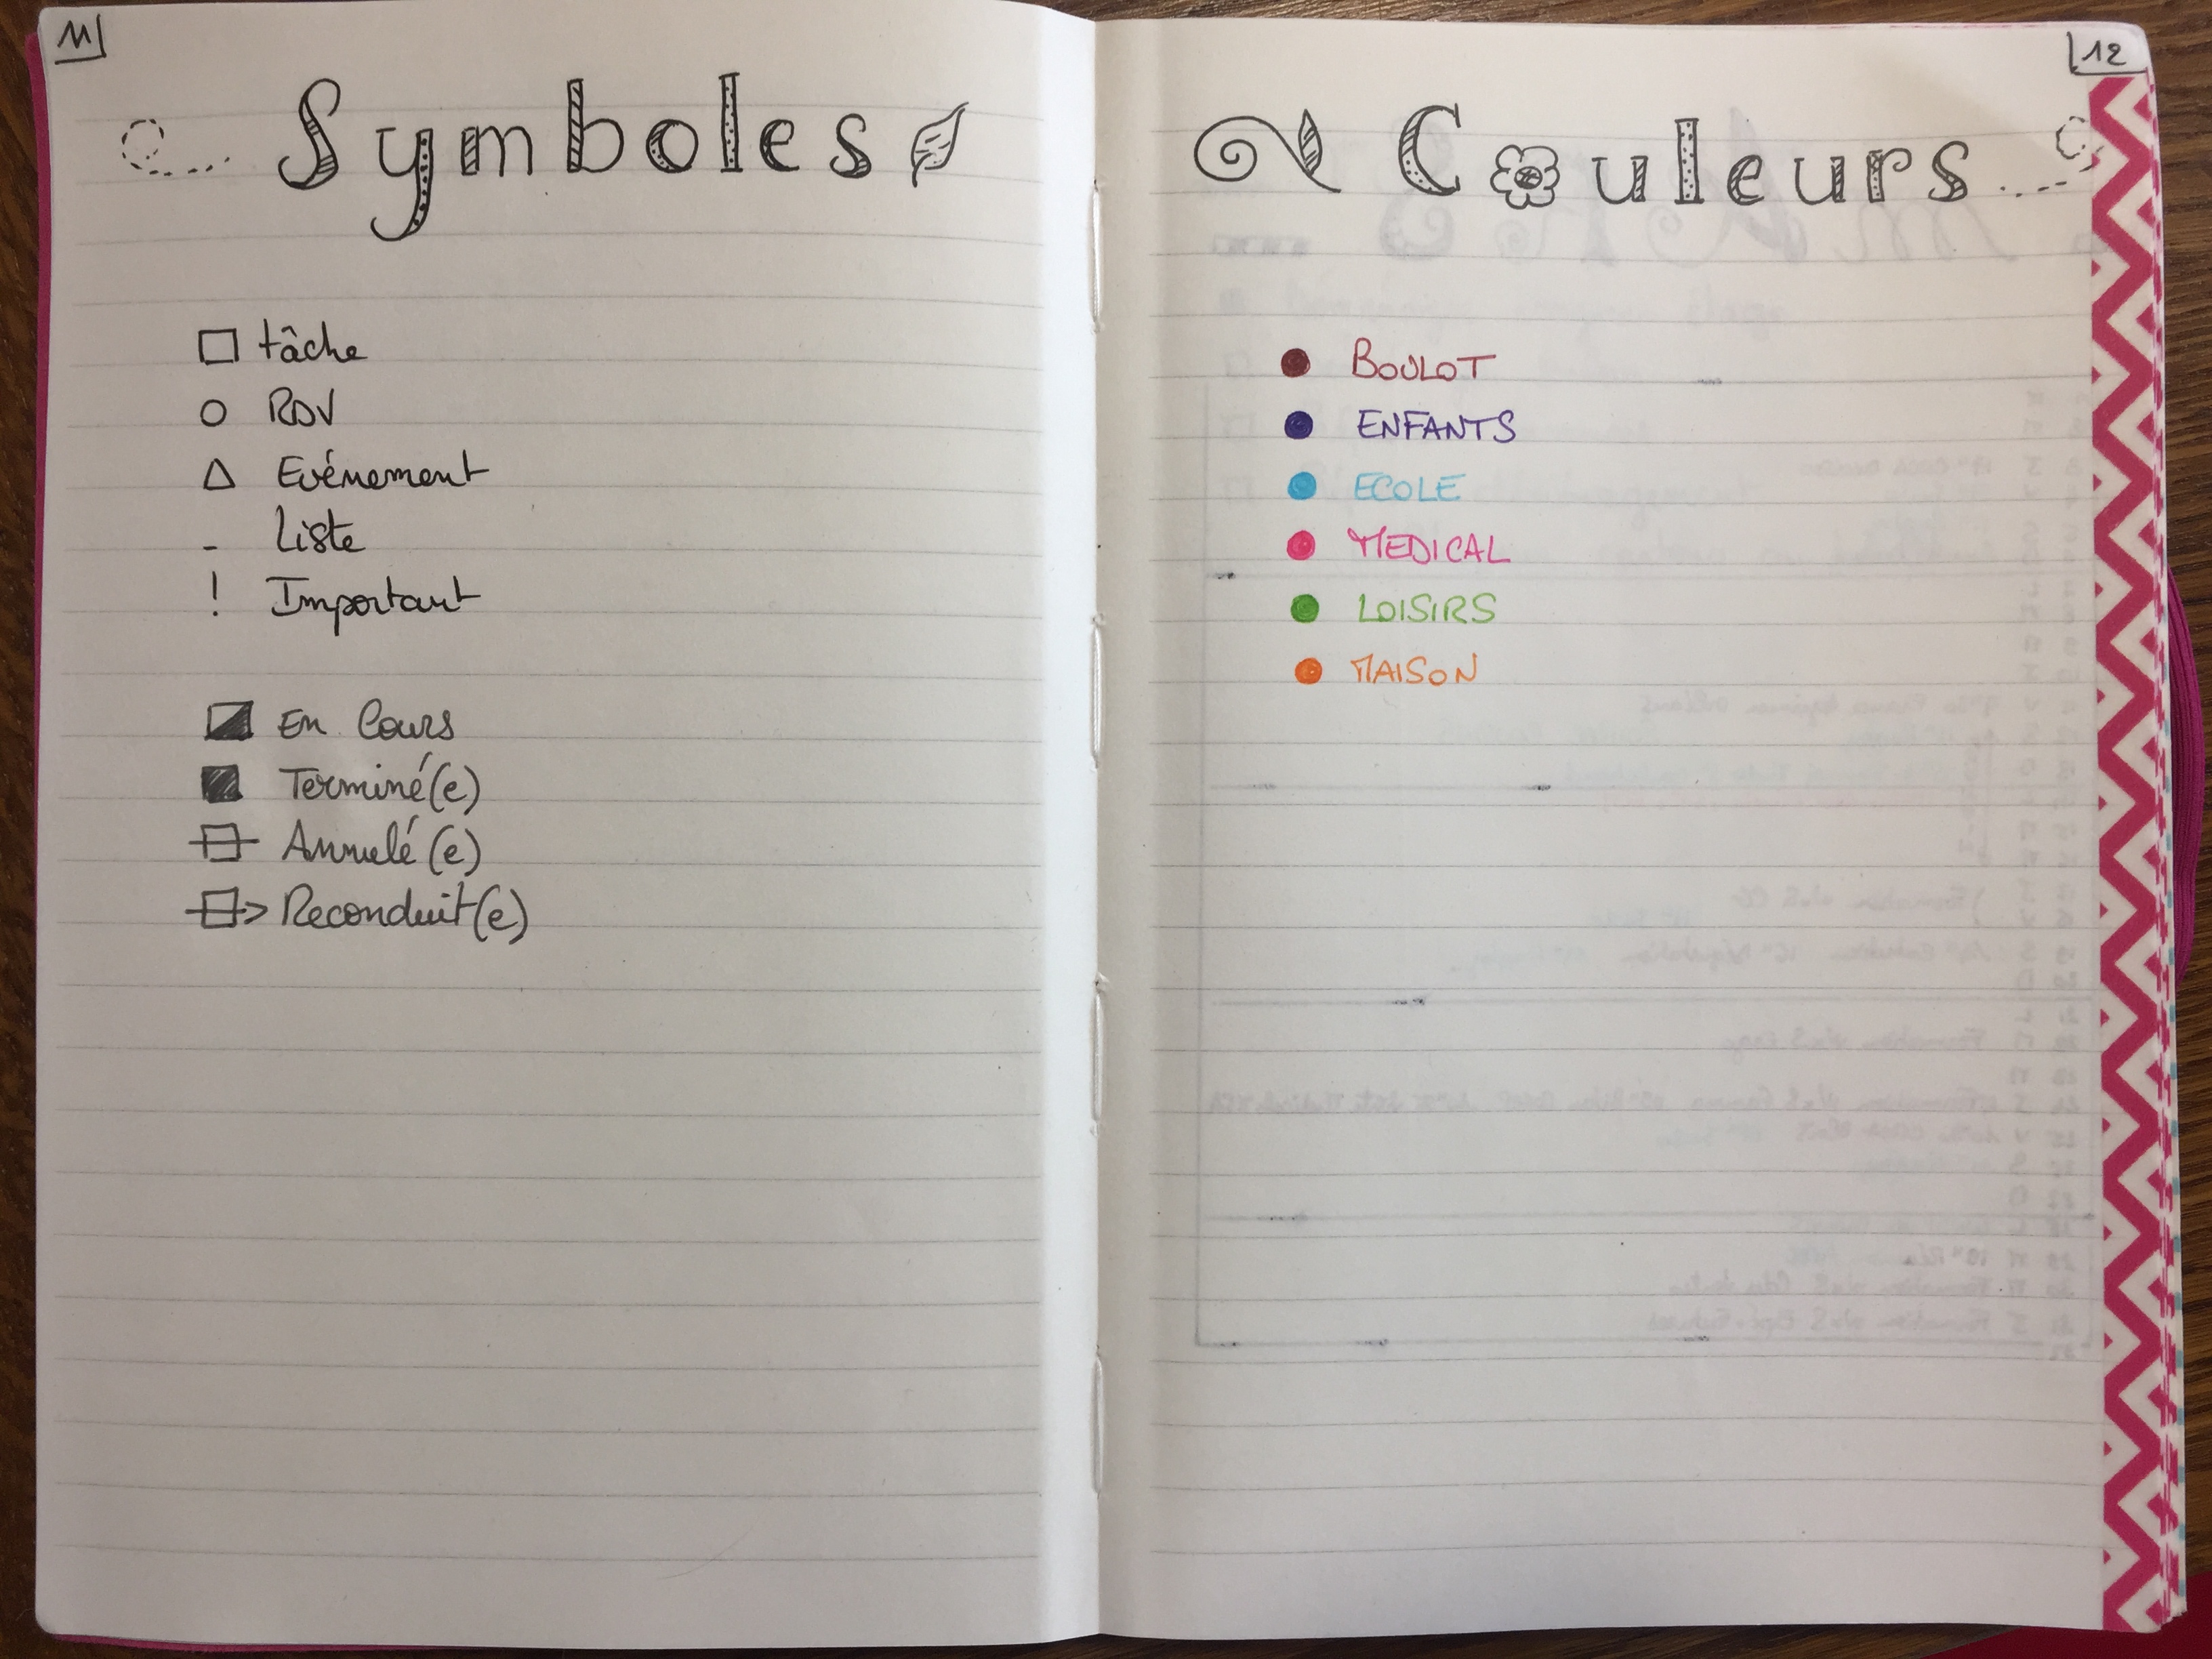 11
Symboles
□ tâche
○ RDV
△ Evénement
- Liste
! Important
En Cours
Terminé(e)
Annulé(e)
Reconduit(e)
12
Couleurs
BOULOT
ENFANTS
ECOLE
MEDICAL
LOISIRS
MAISON